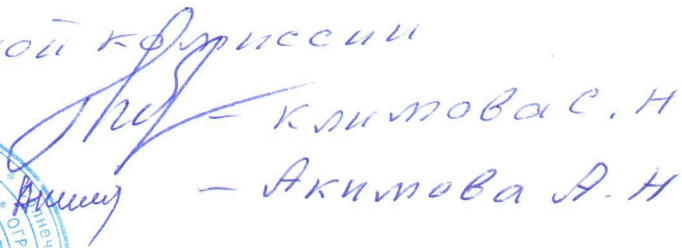 ой комиссии
– Климова С. Н
– Акимова А. Н